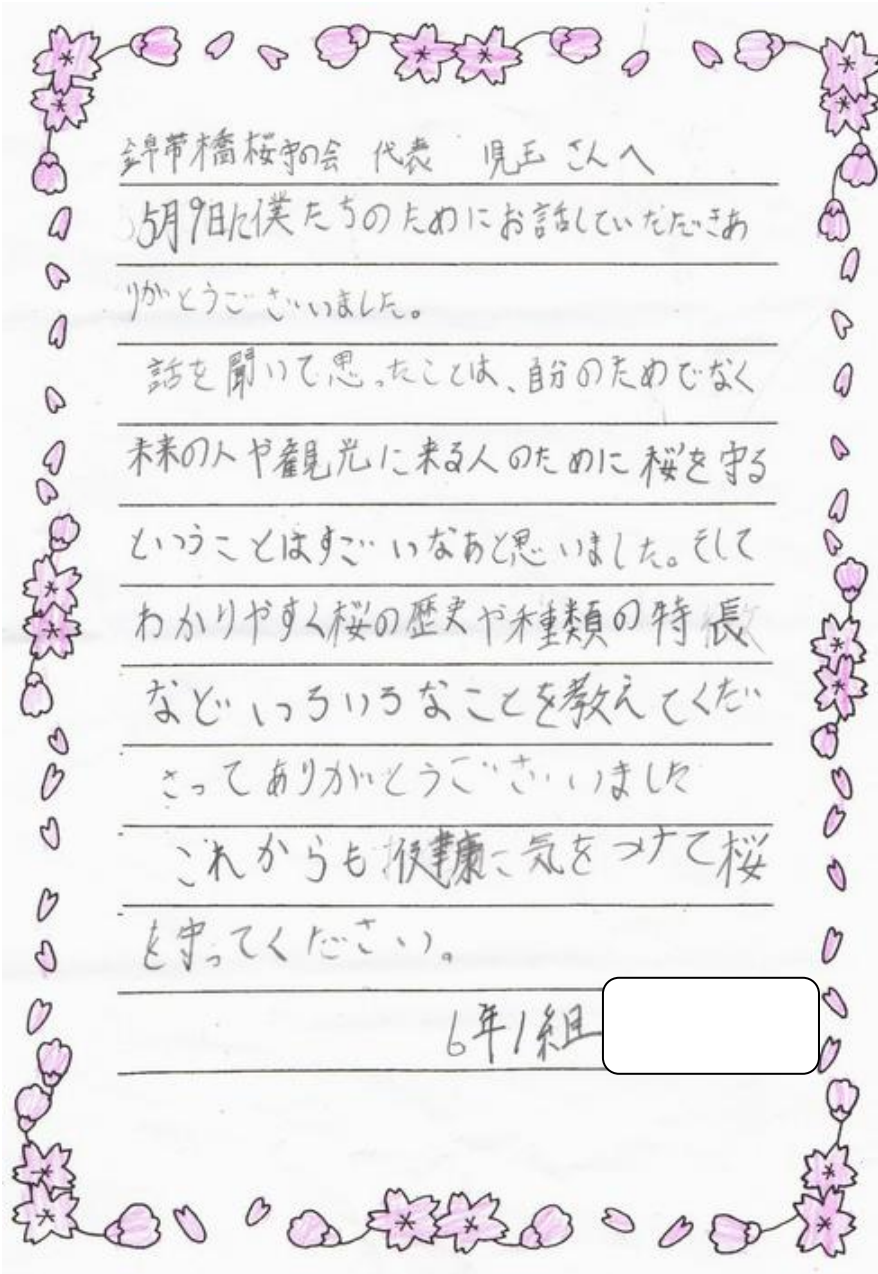 錦帯橋桜守の会 代表 児玉 さんへ
5月9日に僕たちのためにお話していただきあ
りがとうございました。
話を聞いて思ったことは、自分のためでなく
未来の人や観光に来る人のために桜を守る
ということはすごいなあと思いました。そして
わかりやすく桜の歴史や種類の特長
などいろいろなことを教えてくだ
さってありがとうございました
これからも健康に気をつけて桜
を守ってください。
6年1組